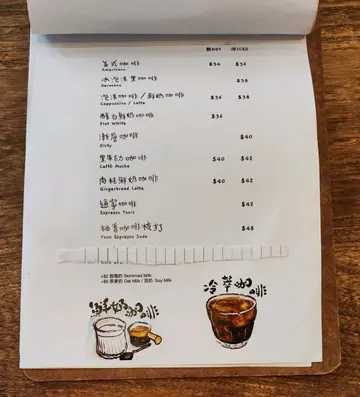 熱HOT 凍ICED
美式咖啡 $34 $36
Americano
冰泡沫黑咖啡 $38
Aerocano
泡沫咖啡/鮮奶咖啡 $36 $38
Cappuccino / Latte
醇白鮮奶咖啡 $36
Flat White
髒髒咖啡 $40
Dirty
黑朱古力咖啡 $40 $42
Caffè Mocha
肉桂鮮奶咖啡 $40 $42
Gingerbread Latte
通寧咖啡 $42
Espresso Tonic
柚香咖啡梳打 $48
Yuzu Espresso Soda
+$2 脫脂奶 Skimmed Milk
+$5 燕麥奶 Oat Milk / 豆奶 Soy Milk
鮮奶咖啡
冷萃咖啡